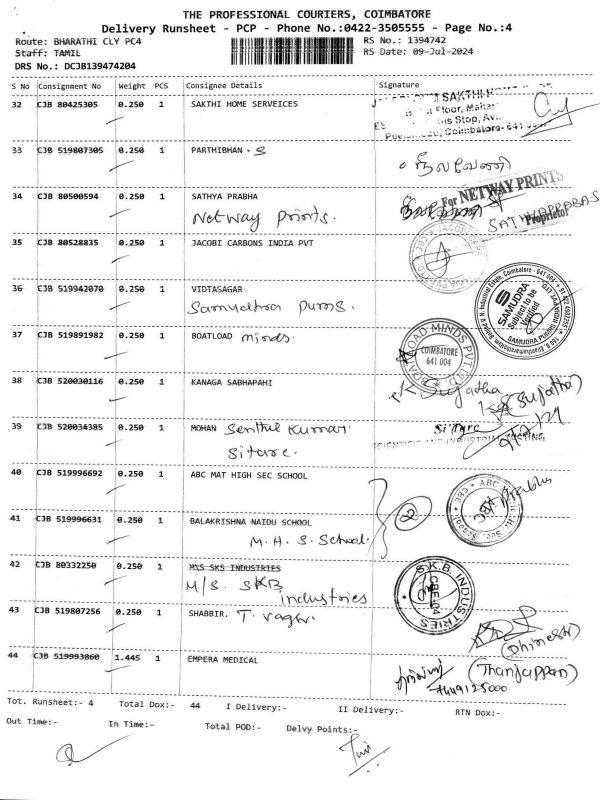 THE PROFESSIONAL COURIERS, COIMBATORE
Delivery Runsheet - PCP - Phone No.:0422-3505555 - Page No.:4
Route: BHARATHI CLY PC4 RS No.: 1394742
Staff: TAMIL RS Date: 09-Jul-2024
DRS No.: DCJB139474204
S No Consignment No Weight PCS Consignee Details Signature
32 CJB 80425305 0.250 1 SAKTHI HOME SERVEICES
SAKTHI H
Floor, Mahar
s Stop, Av
Coimbatore- 641
33 CJB 519807305 0.250 1 PARTHIBHAN . S
34 CJB 80500594 0.250 1 SATHYA PRABHA
Netway Prints.
For NETWAY PRINTS
Proprietor
35 CJB 80528835 0.250 1 JACOBI CARBONS INDIA PVT
36 CJB 519942070 0.250 1 VIDTASAGAR
Samudra Pumps.
SAMUDRA
Subject to be
Verified
37 CJB 519891982 0.250 1 BOATLOAD minds.
BOATLOAD MINDS PVT LTD
COIMBATORE
641 004
38 CJB 520030116 0.250 1 KANAGA SABHAPAHI
K Sujatha
(Sujatha)
39 CJB 520034385 0.250 1 MOHAN Senthil Kumar
Sitarc.
Si'Tarc
SCIENTIFIC AND INDUSTRIAL TESTING
40 CJB 519996692 0.250 1 ABC MAT HIGH SEC SCHOOL
41 CJB 519996631 0.250 1 BALAKRISHNA NAIDU SCHOOL
M. H. S. School
2
42 CJB 80332250 0.250 1 M\S SKS INDUSTRIES
M/S. SKB
industries
S.K.B. INDUSTRIES
CBE-04
43 CJB 519807256 0.250 1 SHABBIR. T.
(Dhinesh)
44 CJB 519993860 1.445 1 EMPERA MEDICAL
(Thanjappan)
Tot. Runsheet:- 4 Total Dox:- 44 I Delivery:- II Delivery:- RTN Dox:-
Out Time:- In Time:- Total POD:- Delvy Points:-